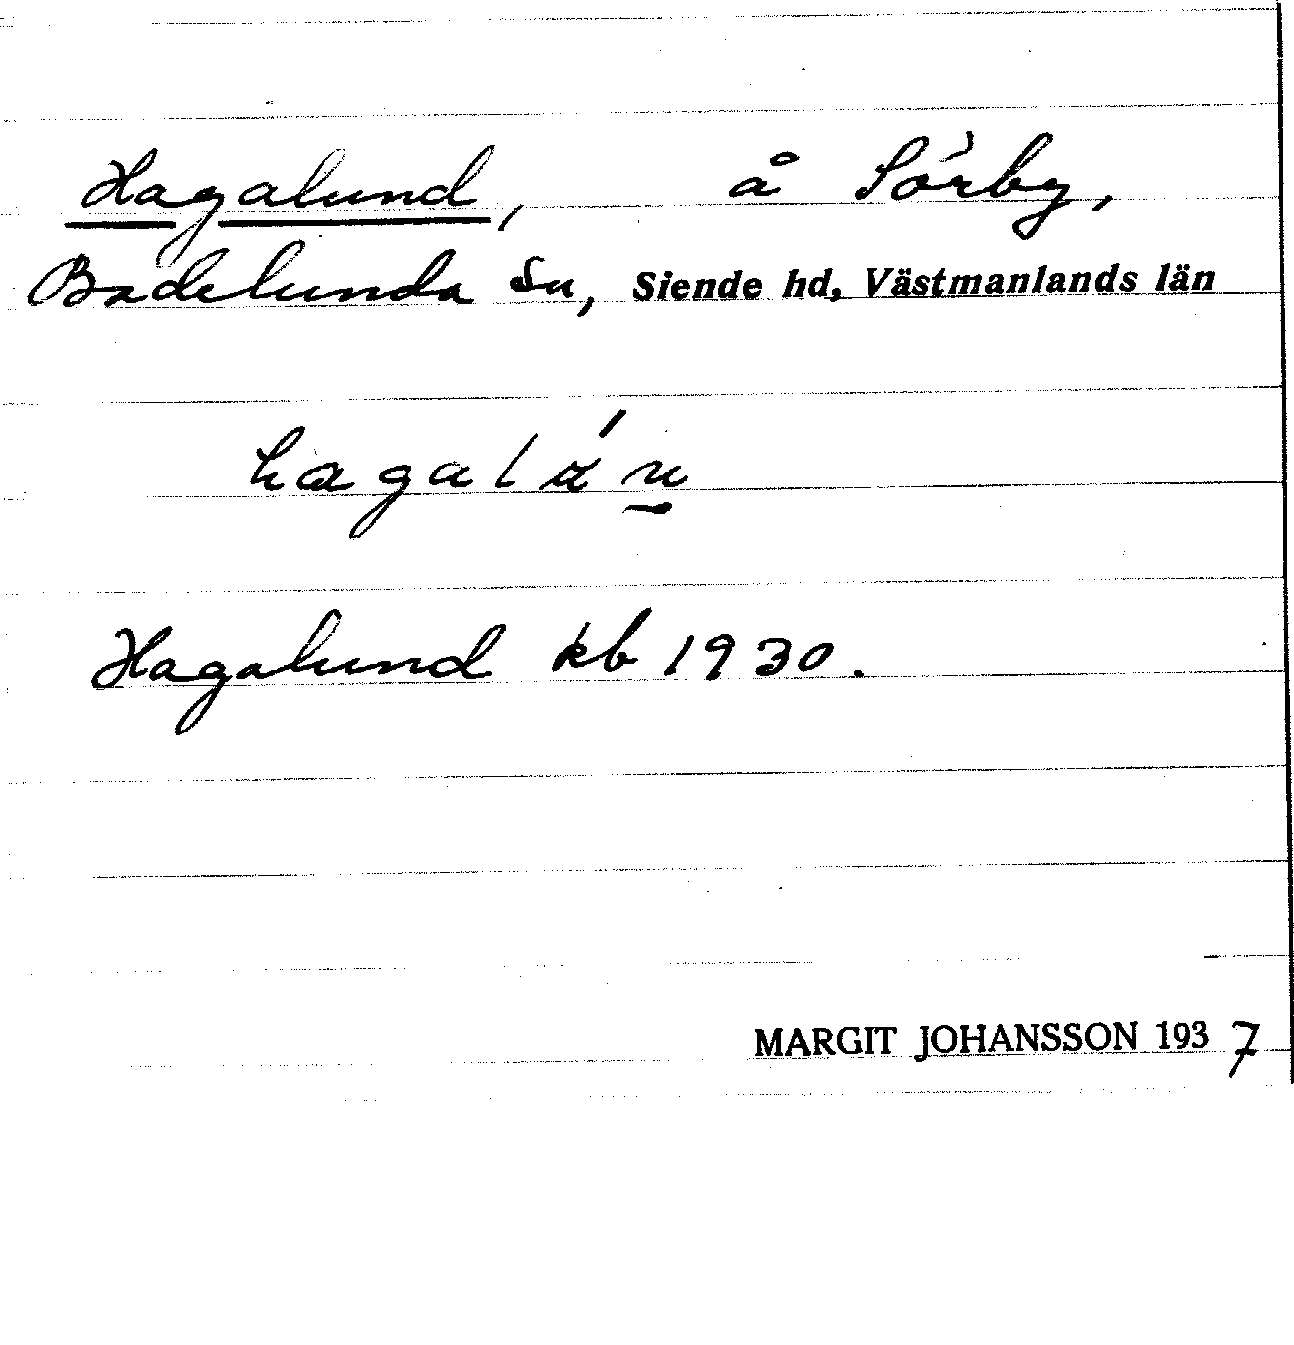 Hagalund, å Sörby,
Badelunda sn, Siende hd, Västmanlands län
hagalán
Hagalund kb 1930.
MARGIT JOHANSSON 1937